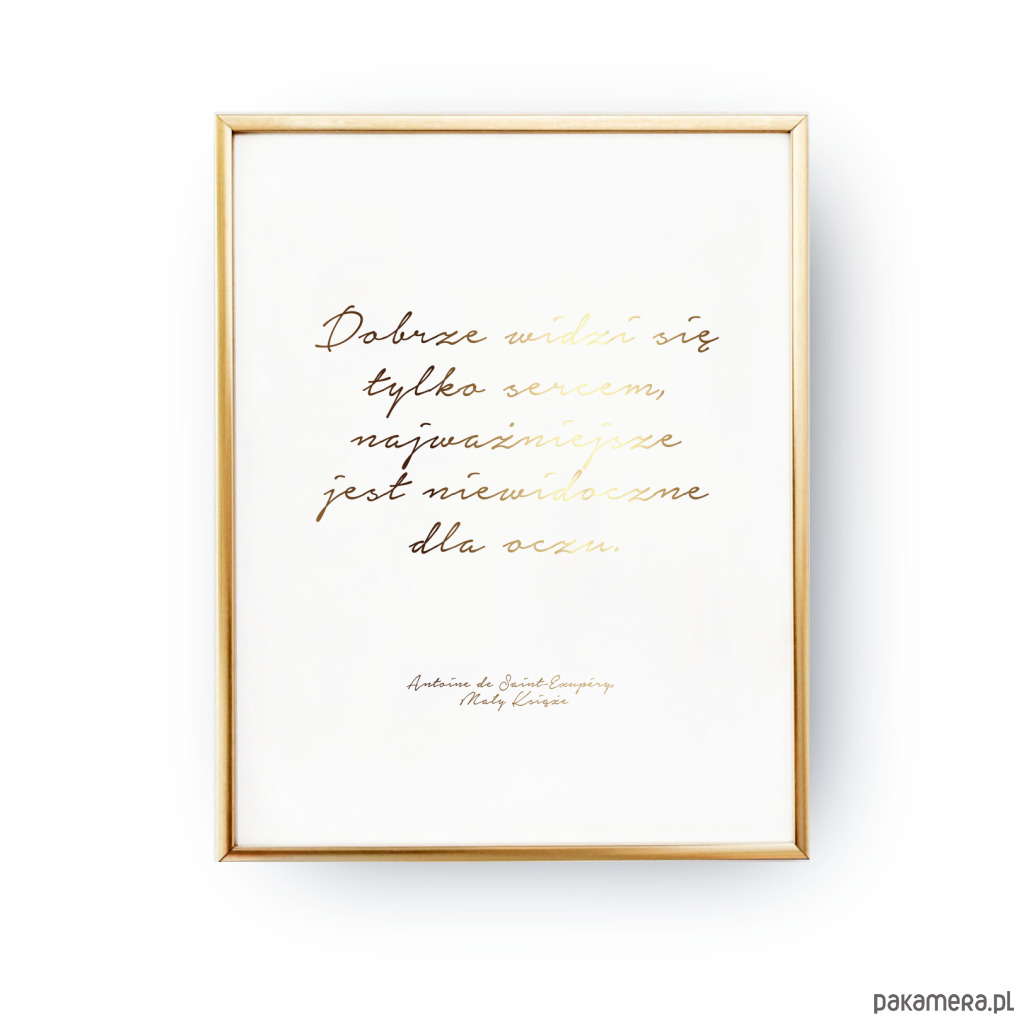 Dobrze widzi się
tylko sercem,
najważniejsze
jest niewidoczne
dla oczu.
Antoine de Saint-Exupéry,
Mały Książe
pakamera.pl